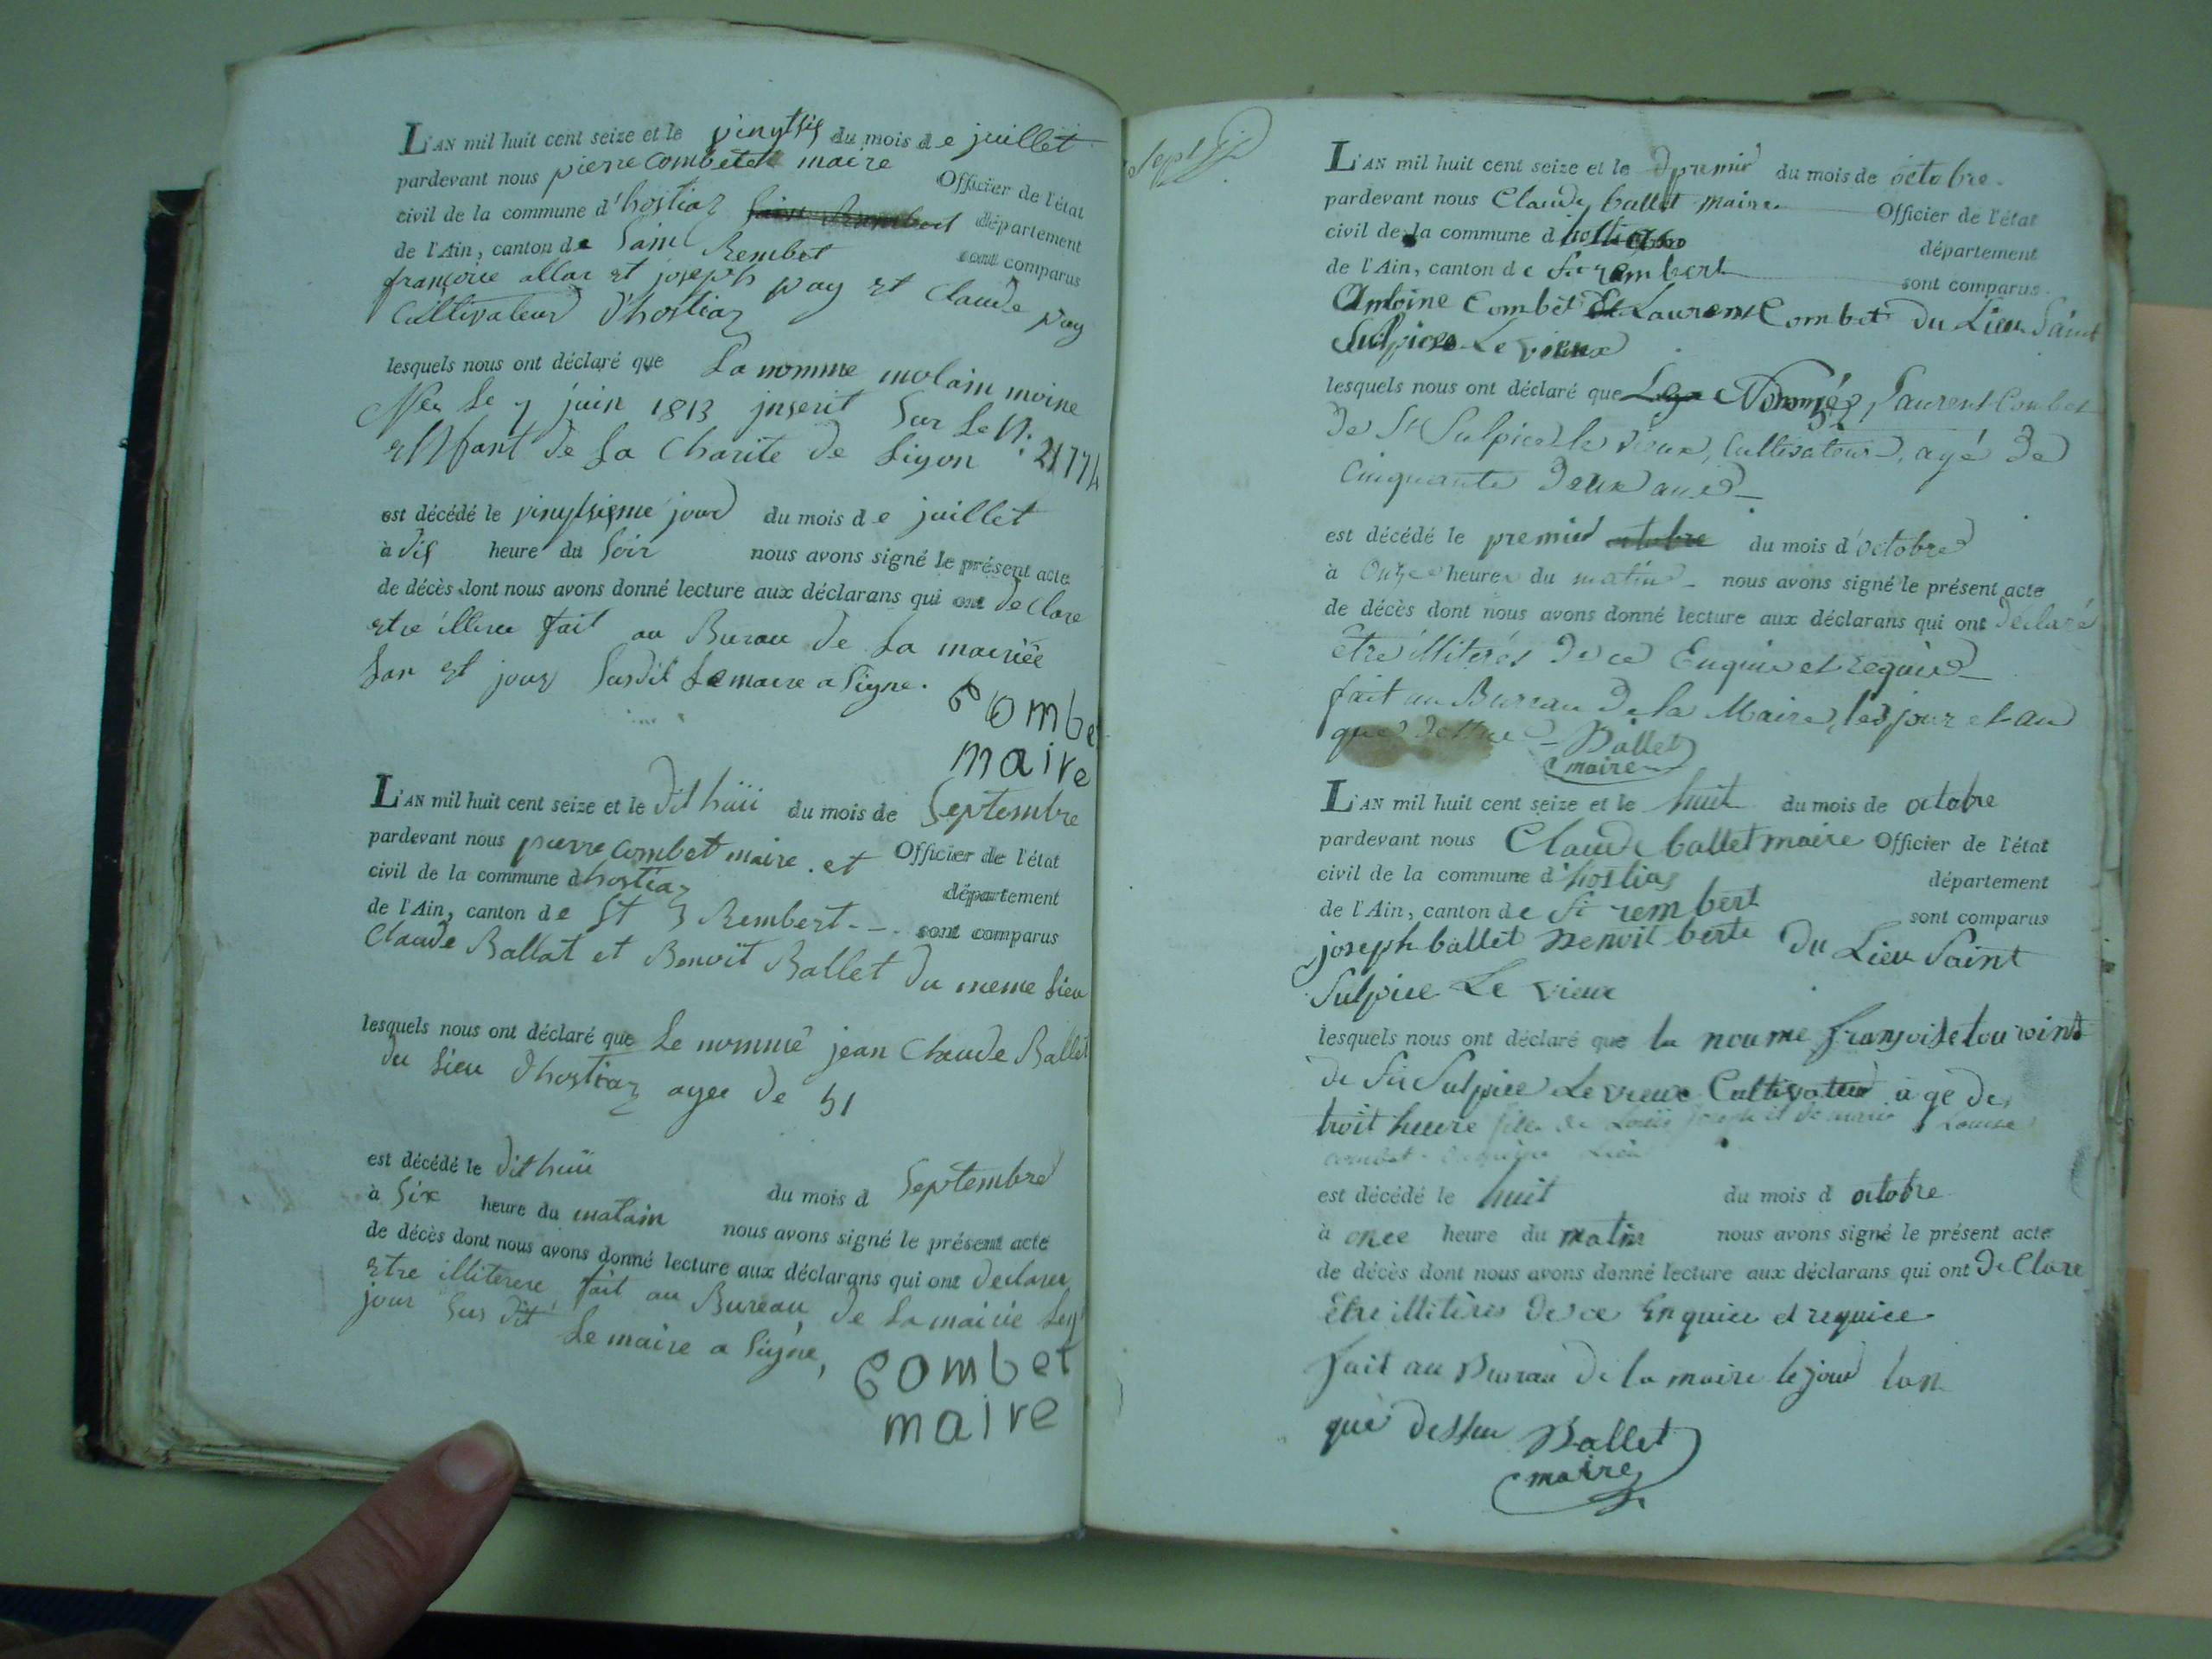 L'AN mil huit cent seize et le vingtsis du mois de juillet
pardevant nous pierre combet maire Officier de l'état
civil de la commune d'hostiaz département
de l'Ain, canton de Saint Rembet sont comparus
françoise allar et joseph pay et Claude pay
Cultivateur d'hostiaz
lesquels nous ont déclaré que La nomme molain moine
Nee Le 7 juin 1813 jnscrit Sur Le N: 21774
enfant de La Charite de Liyon
est décédé le vingtsigme jour du mois de juillet
à dis heure du Soir nous avons signé le présent acte
de décès dont nous avons donné lecture aux déclarans qui ont declare
etre illitere fait au Burau de La mairiee
Lan et jour Susdit Le maire a Signe.
Combe
maire
L'AN mil huit cent seize et le dit huii du mois de Septembre
pardevant nous pierre combet maire. et Officier de l'état
civil de la commune dhostiaz département
de l'Ain, canton de St Rembert sont comparus
Claude Ballat et Benoit Ballet du meme Lieu
lesquels nous ont déclaré que Le nommé jean Claude Ballet
du Lieu dhostiaz agee de 51
est décédé le dit huii du mois d Septembre
à Six heure du matain nous avons signé le présent acte
de décès dont nous avons donné lecture aux déclarans qui ont declarer
etre illiterere fait au Bureau de La mairie
jour Sus dit Le maire a Signe,
Combet
maire
L'AN mil huit cent seize et le premier du mois de octobre
pardevant nous Claude ballet maire Officier de l'état
civil de la commune d hostias département
de l'Ain, canton de St rembert sont comparus
Antoine Combet Et Laurent Combet du Lieu Saint
Sulpice Le vieux
lesquels nous ont déclaré que Le Nommé Laurent Combet
de St Sulpice le vieux, Cultivateur, agé de
Cinquante deux ans
est décédé le premier octobre du mois d'octobre
à Onze heures du matin nous avons signé le présent acte
de décès dont nous avons donné lecture aux déclarans qui ont déclaré
être illiterés de ce Enquis et requis
fait au Bureau de la Maire, les jour et an
que dessus Ballet
maire
L'AN mil huit cent seize et le huit du mois de octobre
pardevant nous Claude ballet maire Officier de l'état
civil de la commune d'hostias département
de l'Ain, canton de St rembert sont comparus
joseph ballet Benoit berte du Lieu Saint
Sulpice Le vieux
lesquels nous ont déclaré que la nomme françoise
de St Sulpice Le vieux Cultivateur age de
troit heure fille de Louis joseph et de marie Louise
combet
est décédé le huit du mois d octobre
à once heure du matin nous avons signé le présent acte
de décès dont nous avons donné lecture aux déclarans qui ont declare
Etre illitères de ce Enquice et requice
fait au Bureau de la maire le jour lan
que dessus Ballet
maire